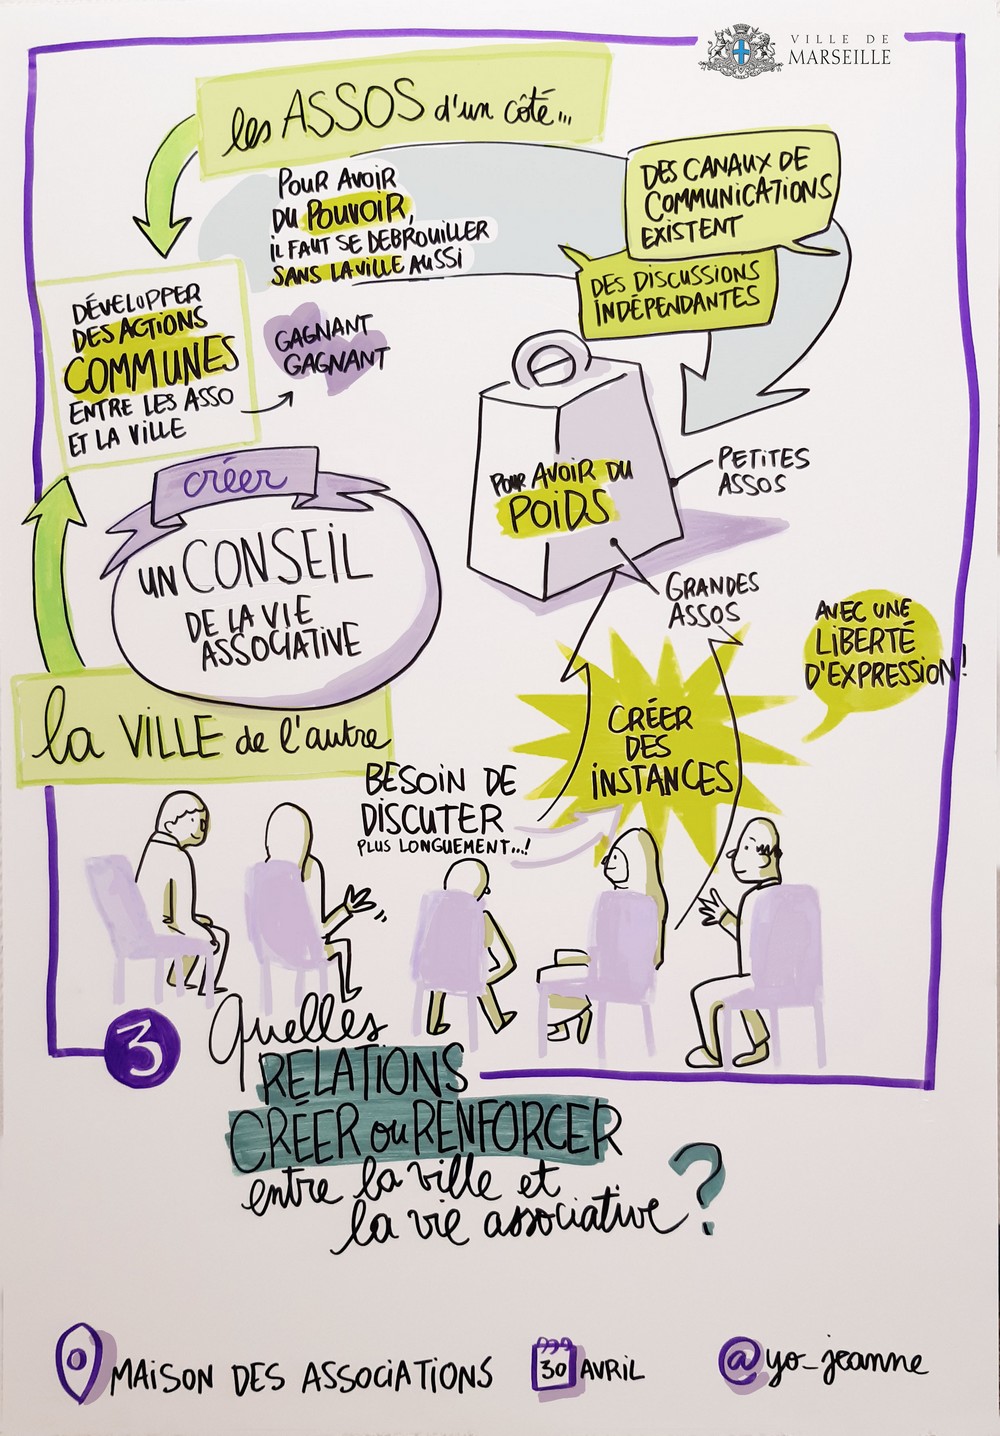 VILLE DE
MARSEILLE
les ASSOS d'un côté...
POUR AVOIR
DU POUVOIR,
IL FAUT SE DEBROUILLER
SANS LA VILLE AUSSI
DES CANAUX DE
COMMUNICATIONS
EXISTENT
DES DISCUSSIONS
INDÉPENDANTES
DÉVELOPPER
DES ACTIONS
COMMUNES
ENTRE LES ASSO
ET LA VILLE
GAGNANT
GAGNANT
créer
UN CONSEIL
DE LA VIE
ASSOCIATIVE
POUR AVOIR DU
POIDS
PETITES
ASSOS
GRANDES
ASSOS
AVEC UNE
LIBERTÉ
D'EXPRESSION!
la VILLE de l'autre
CRÉER
DES
INSTANCES
BESOIN DE
DISCUTER
PLUS LONGUEMENT...!
3
Quelles
RELATIONS
CRÉER ou RENFORCER
entre la ville et
la vie associative ?
MAISON DES ASSOCIATIONS
30 AVRIL
@yo_jeanne